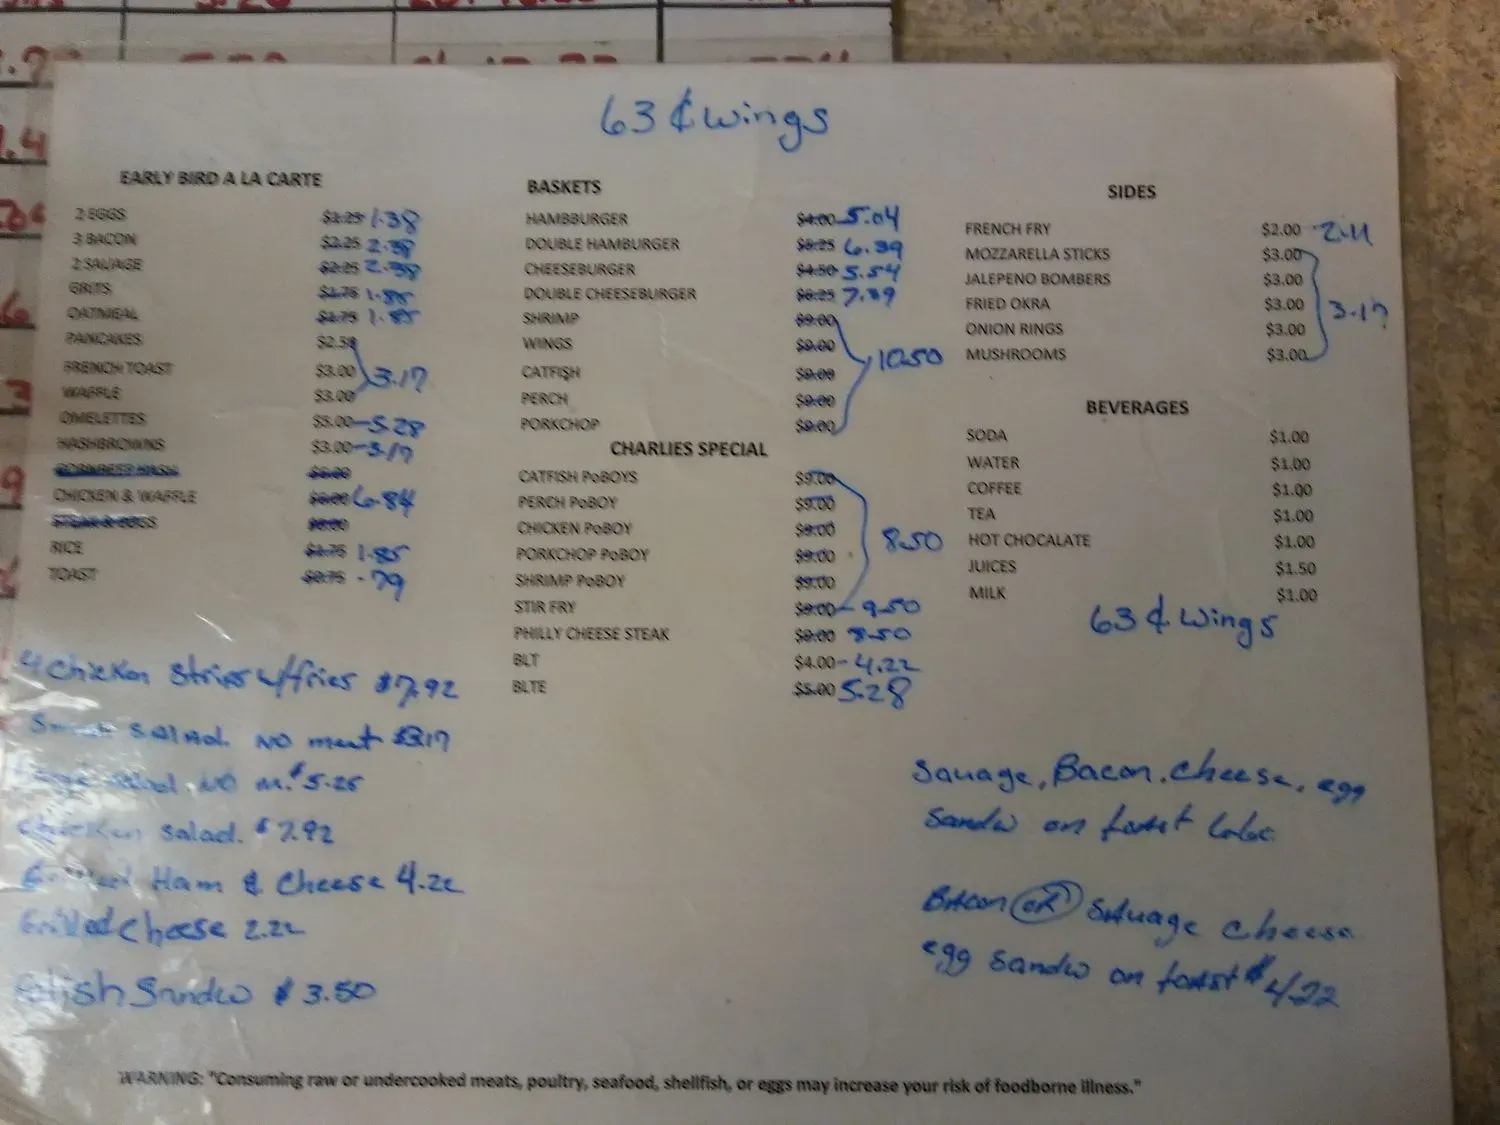 63 ¢ wings
EARLY BIRD A LA CARTE
2 EGGS $1.25 1.38
3 BACON $2.25 2.38
2 SAUAGE $2.25 2.38
GRITS $1.75 1.85
OATMEAL $1.75 1.85
PANCAKES $2.50
FRENCH TOAST $3.00 3.17
WAFFLE $3.00
OMELETTES $5.00 - 5.28
HASHBROWNS $3.00 - 3.17
CORNBEEF HASH
CHICKEN & WAFFLE 6.84
STEAK & EGGS
RICE $1.75 1.85
TOAST $0.75 .79
4 Chicken Strips w/fries $7.92
salad. NO meat $3.17
salad NO m. $5.25
Chicken salad. $7.92
Ham & Cheese 4.22
Grilled Cheese 2.22
Polish Sandw $3.50
BASKETS
HAMBBURGER $4.00 5.04
DOUBLE HAMBURGER 6.39
CHEESEBURGER $4.50 5.54
DOUBLE CHEESEBURGER 7.39
SHRIMP $9.00
WINGS $9.00 10.50
CATFISH $9.00
PERCH $9.00
PORKCHOP $9.00
CHARLIES SPECIAL
CATFISH PoBOYS $9.00
PERCH PoBOY $9.00
CHICKEN PoBOY $9.00 8.50
PORKCHOP PoBOY $9.00
SHRIMP PoBOY $9.00
STIR FRY - 9.50
PHILLY CHEESE STEAK 8.50
BLT $4.00 - 4.22
BLTE $5.00 5.28
SIDES
FRENCH FRY $2.00 2.11
MOZZARELLA STICKS $3.00
JALEPENO BOMBERS $3.00
FRIED OKRA $3.00 3.17
ONION RINGS $3.00
MUSHROOMS $3.00
BEVERAGES
SODA $1.00
WATER $1.00
COFFEE $1.00
TEA $1.00
HOT CHOCALATE $1.00
JUICES $1.50
MILK $1.00
63 ¢ wings
Sauage, Bacon. Cheese, egg
Sandw on toast
Bacon OR Sauage cheese
egg sandw on toast $4.22
WARNING: "Consuming raw or undercooked meats, poultry, seafood, shellfish, or eggs may increase your risk of foodborne illness."